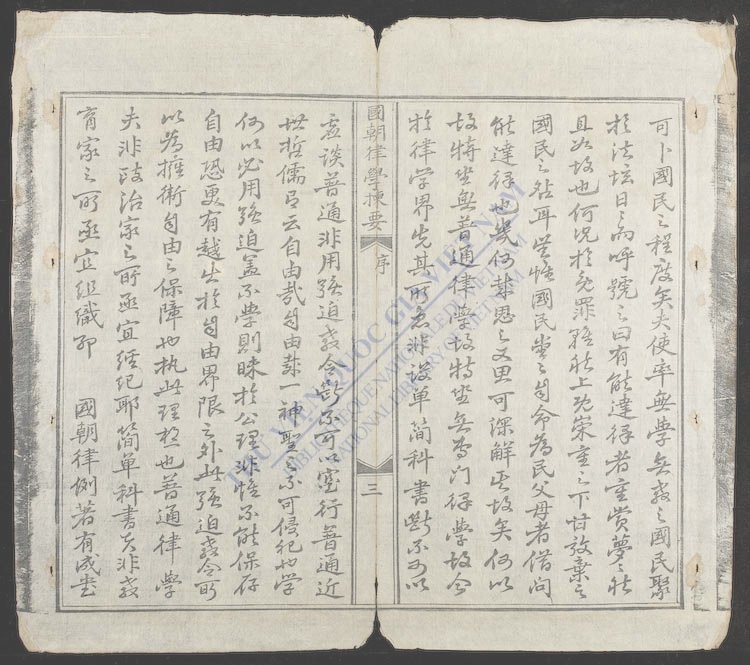 可卜國民之程度矣夫使率無學無教之國民聚
於法坛日日而呼號之曰有能達律者重賞夢々然
且如故也何況於免罪然上既榮重之下甘放棄之
國民之耳豈惟國民之自命為民父母者借問
能達律也幾何哉思之又思可深解其故矣何以
故特坐無普通律學故特坐無專门律學故今
於律学界先其所急非設單簡科書斷不可以
國朝律學揀要
序
三
虛談普通非用強迫教令斷不可以實行普通近
世哲儒有云自由哉自由哉一神聖之不可侵犯也學
何以必用強迫盖不學則昧於公理非惟不能保存
自由恐更有越出於自由界限之外此強迫教令所
以為擁衛自由之保障也执此理推也普通律學
夫非政治家之所亟宜經紀耶簡單科書夫非教
育家之所亟宜組織耶 國朝律例著有成書
THƯ VIỆN QUỐC GIA VIỆT NAM
BIBLIOTHEQUE NATIONALE DU VIETNAM
NATIONAL LIBRARY OF VIETNAM